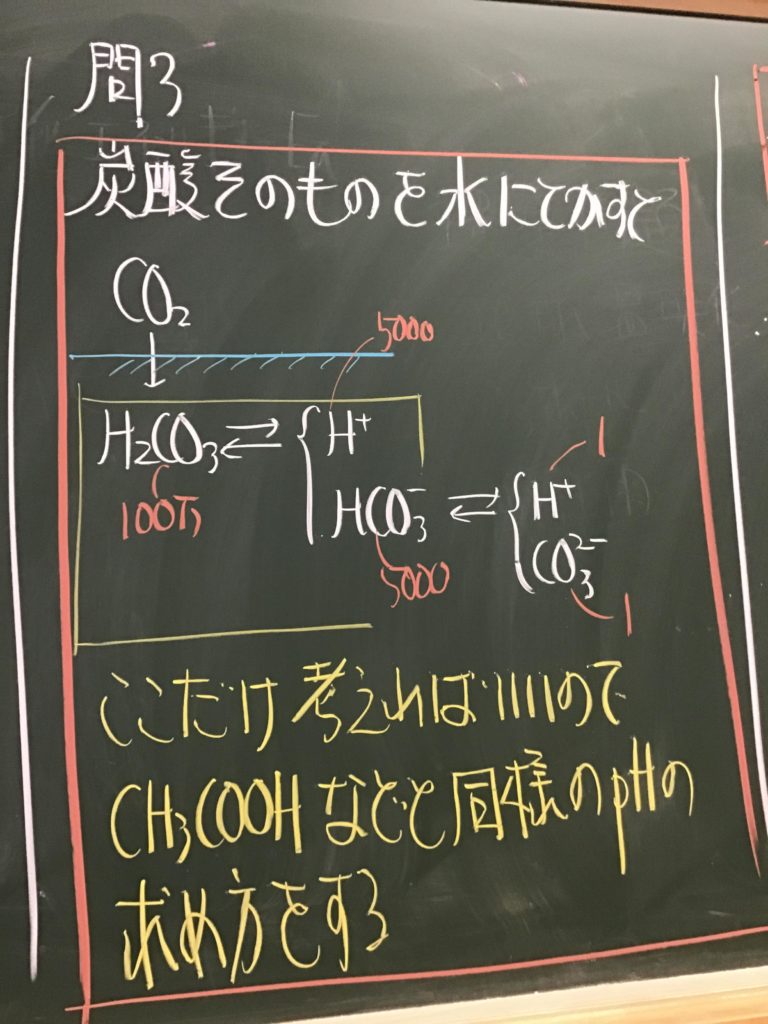 問3
炭酸そのものを水にとかすと
CO₂
5000
H₂CO₃ ⇄ { H⁺
100万
HCO₃⁻ ⇄ { H⁺
1
5000
CO₃²⁻
1
ここだけ考えればいいので
CH₃COOHなどと同様のpHの
求め方をする